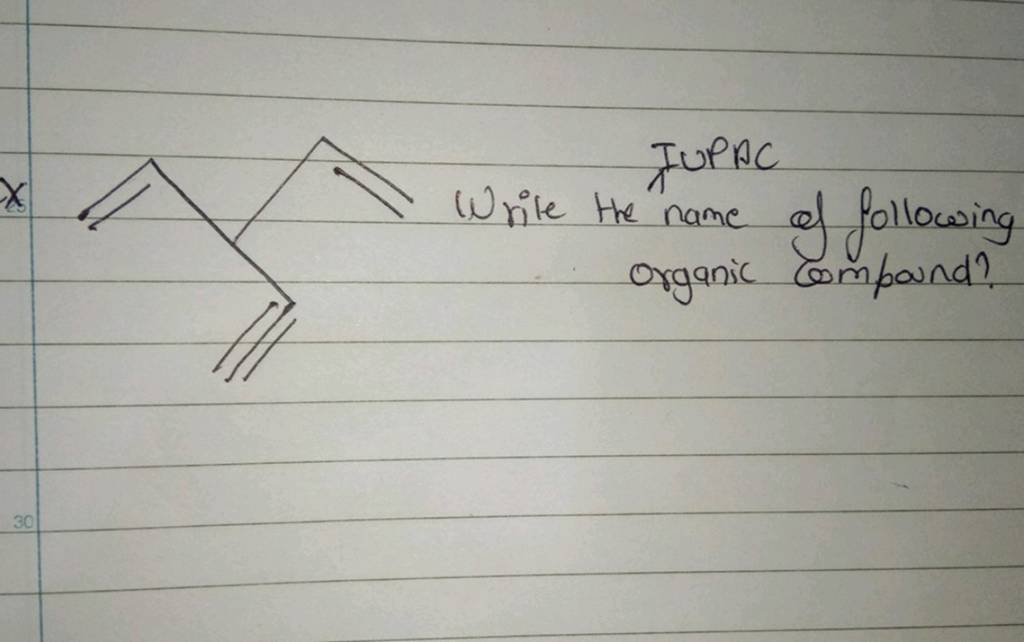 X
25
IUPAC
Write the ^ name of following
organic Compound?
30